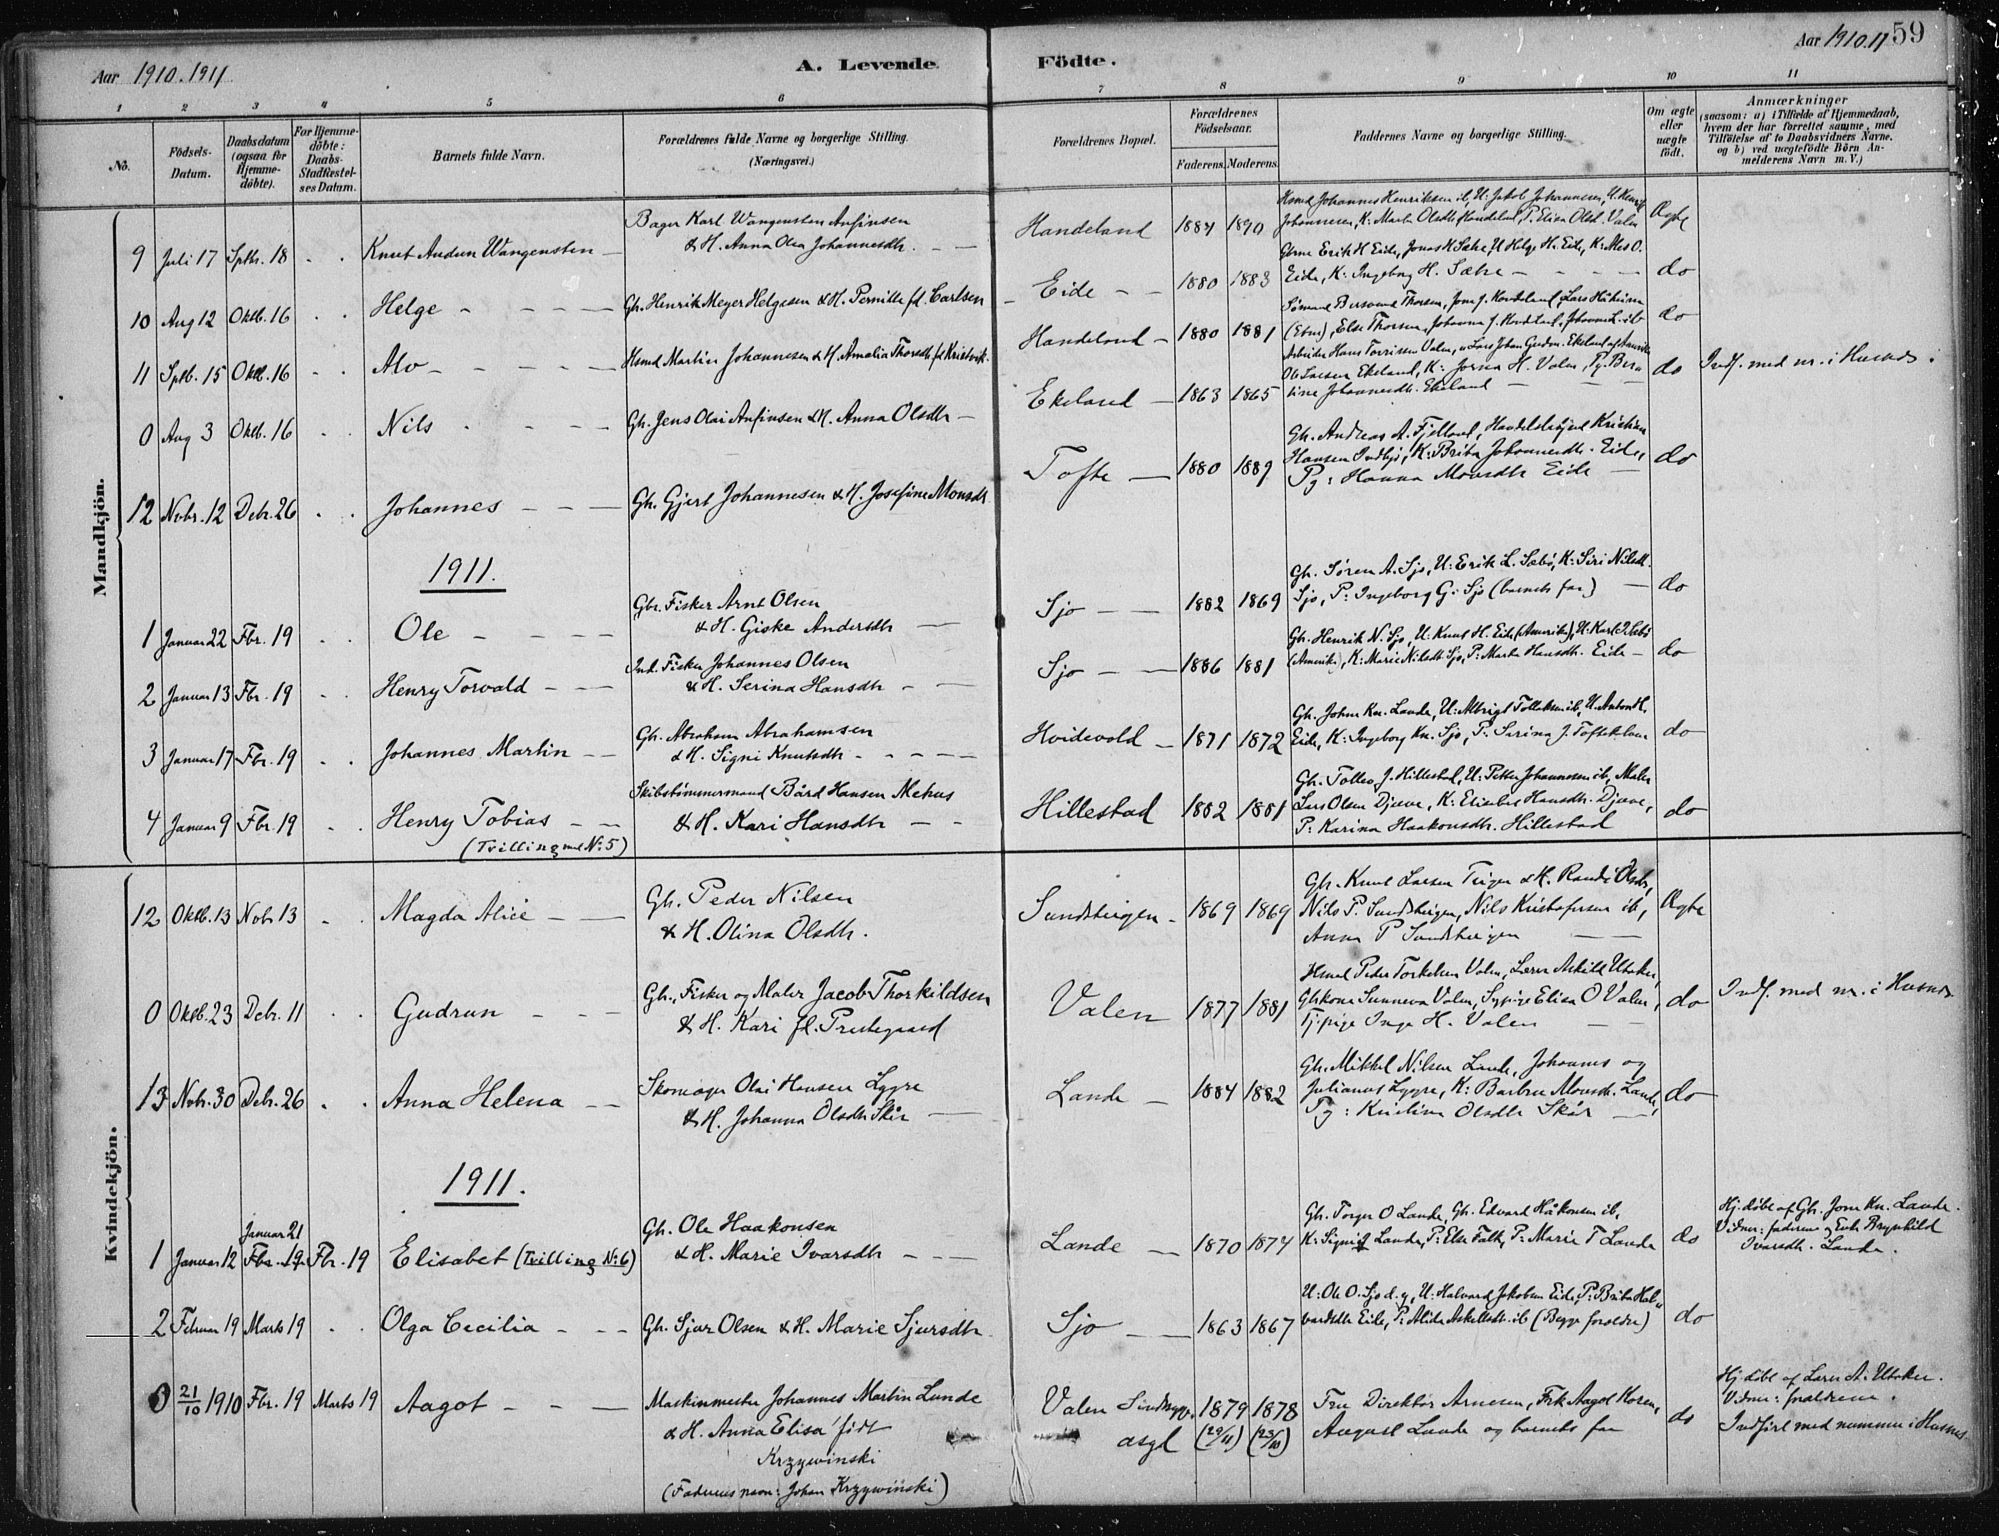 Aar 1910.1911
A. Levende
Födte.
Aar 1910.11
59
1 2 3 4 5 6 7 8 9 10 11
No.
Födsels-Datum.
Daabsdatum (ogsaa for Hjemme-döbte).
For Hjemme-döbte: Daabs-Stadfæstel-ses Datum.
Barnets fulde Navn.
Forældrenes fulde Navne og borgerlige Stilling. (Næringsvei.)
Forældrenes Bopæl.
Forældrenes Födselsaar.
Faderens. Moderens.
Faddernes Navne og borgerlige Stilling.
Om ægte eller uægte födt.
Anmærkninger
(saasom: a) i Tilfælde af Hjemmedaab, hvem der har forrettet samme, med Tilföielse af to Daabsvidners Navne, og b) ved uægtefödte Börn An-melderens Navn m. V.)
Mandkjön.
9 Juli 17 Sptb. 18 Knut Audun Wangensten
Bager Karl Wangensten Anfinsen
& H. Anna Olea Johannesdtr.
Handeland 1884 1890
Hsmd Johannes Henriksen ib, U: Jakob Johannesen, U. Henrik
Johannesen, K: Marta Olsdtr Handeland, P. Elisa Olsd. Valen
Ægte
10 Aug 12 Oktb. 16 Helge
Gh. Henrik Meyer Helgesen & H. Pernille fd. Carlsen
Eide 1880 1883
Gbrne Erik H Eide, Jonas H Sæbø, U Helge H. Eide, K: Mes O.
Eide, K: Ingeborg H. Sæbø
do
11 Sptb. 15 Oktb. 16 Alv
Hsmd Martin Johannesen & H. Amalia Thoresdtr fd Kristvik
Handeland 1880 1881
(Etne), Else Thorsen, Johanna J. Handeland, Johanna L. ib
do
0 Aug 3 Oktb. 16 Nils
Gh. Jens Olai Anfinsen & H. Anna Olsdtr
Ekeland 1863 1865
Arbeider Hans Torrisen Valen, Lars Johan Gudm. Ekeland af Amerika
Ole Larsen Ekeland, K: Jorina H. Valen, Pg. Bero
line Johannesdtr. Ekeland
do
Indf. med nr. i Husnes.
12 Novbr. 12 Debr. 26 Johannes
Gh. Gjert Johannesen & H. Josefine Monsdtr
Tofte 1880 1889
Gh. Andreas A. Fjelland, Handelsbetjent Kristian
Hansen Indbjo, K: Brita Johannesdtr. Eide,
Pg: Hanna Monsdtr Eide
do
1911.
1 Januar 22 Fbr. 19 Ole
Gbr. Fisker Arnt Olsen
& H. Giske Andersdtr
Sjo 1882 1869
Gh. Søren A. Sjo, U: Erik L. Sæbö, K: Siri Nilsdtr.
Sjo, P: Ingeborg G. Sjo (barnets far)
do
2 Januar 13 Fbr. 19 Henry Torvald
Ind. Fisker Johannes Olsen
& H. Serina Hansdtr
Sjo 1886 1881
Gh. Henrik N. Sjo, U: Knut H. Eide (Amerika), U: Karl J. Sebö
(Amerika), K: Marie Nilsdtr Sjo, P: Marta Hansdtr. Eide
do
3 Januar 17 Fbr. 19 Johannes Martin
Gh. Abraham Abrahamsen
& H. Signi Knutsdtr
Hvidevold 1871 1872
Gh. Johns Kn. Lande, U: Albrigt Tollaksen ib, U. Anton H.
Eide, K: Ingeborg Kn. Sjo, P: Serina J. Tofteland
do
4 Januar 9 Fbr. 19 Henry Tobias
(Tvilling med N: 5)
Skibstömmermand Bård Hansen Mehus
& H. Kari Hansdtr
Hillestad 1882 1881
Gh. Tollev J. Hillestad, U: Petter Johannessen ib, Maler
Lars Olsen Djuve, K: Elisabet Hansdtr. Djuve,
P: Karina Haakonsdtr. Hillestad
do
Kvindekjön.
12 Oktb. 13 Novb 13 Magda Alice
Gh. Peder Nilsen
& H. Olina Olsdtr.
Sundsteigen 1869 1869
Gh. Knut Larsen Teigen & H. Randi Olsdtr,
Nils P. Sundsteigen, Nils Kristofersen ib,
Anna P Sundsteigen
Ægte
0 Oktb. 23 Debr. 11 Gudrun
Gh., Fisker og Maler Jacob Thorkildsen
& H. Kari fd. Prestegaard
Valen 1877 1881
Hsmd Peder Torkelsen Valen, Lærer Askild Utaker,
Ghkone Sunneva Valen, Sypige Elisa O Valen,
Tj.pige Inga H. Valen
do
Indf. med nr. i Husnes
13 Novbr. 30 Debr. 26 Anna Helena
Skomager Olai Hansen Lygre
& H. Johanna Olsdtr Skår
Lande 1884 1882
Gh. Mikkel Nilsen Lande, Johannes og
Julianus Lygre, K: Barbru Monsdtr. Lande,
Pg: Kristina Olsdtr Skår
do
1911.
1 Januar 12 Januar 21 Fbr. 19 Fbr. 19 Elisabet (Tvilling N: 6)
Gh. Ole Haakonsen
& H. Marie Ivarsdtr
Lande 1870 1874
Gh. Torger O Lande, Gh. Edvard Håkonsen ib,
K: Signi Lande, P: Else Falk, P: Maria T Lande
do
Hj. döbt af Gh. Jone Kn. Lande.
Vidner: faderen og Enke Brynhild
Ivarsdtr. Lande.
2 Februar 19 Marts 19 Olga Cecilia
Gh. Sjur Olsen & H. Marie Sjursdtr
Sjo 1863 1867
U: Ole O. Sjo d.y, U: Halvard Jakobsen Eide, P: Brita Hal
vardsdtr Eide, P: Alida Askelsdtr. ib (Begge forældre)
do
0 21/10 1910 Fbr. 19 Marts 19 Aagot
Maskinmester Johannes Martin Lunde
& H. Anna Elisa födt
Krzywinski
(Faderens navn: Johan Krzywinski)
Valen Sindssyge
asyl
1879 (29/11) 1878 (23/10)
Fru Direktör Arnesen, Frk Aagot Rosen,
August Lunde og barnets far
do
Hj. döbt af Lærer A. Utaker.
Vidner: forældrene.
Indfört med nummer i Husnes